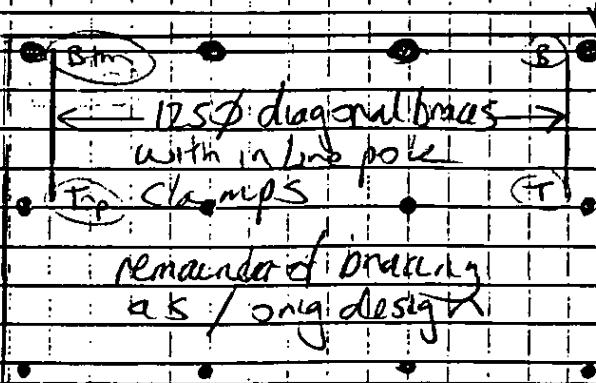 Btm B
125Ø diagonal braces
with in line pole
Top clamps T
remainder of bracing
as / orig design